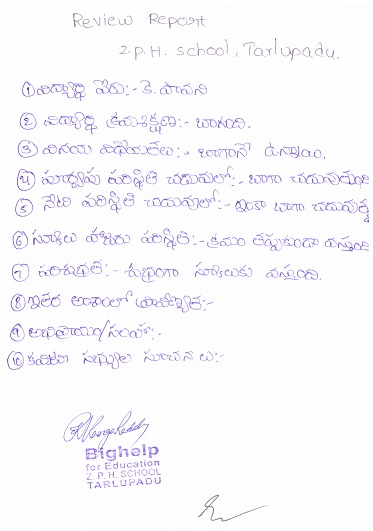 Review Report
Z.P.H. School, Tarlupadu.
① విద్యార్థి పేరు:- కె. పావని
② విద్యార్థి క్రమశిక్షణ:- బాగుంది.
③ వినయ విధేయతలు:- బాగానే ఉన్నాయి.
④ పూర్వపు పరిస్థితి చదువులో:- బాగా చదువుతుంది
⑤ నేటి పరిస్థితి చదువులో:- ఇంకా బాగా చదువుతు
⑥ స్కూలు హాజరు పరిస్థితి:- క్రమం తప్పకుండా వస్తుంది
⑦ పరిశుభ్రత:- శుభ్రంగా స్కూలుకు వస్తుంది.
⑧ ఇతర అంశాలలో ప్రావీణ్యత:-
⑨ అభిప్రాయం/సలహా:-
⑩ కమిటీ సభ్యుల సూచనలు:-
Bighelp
for Education
Z.P.H. SCHOOL
TARLUPADU